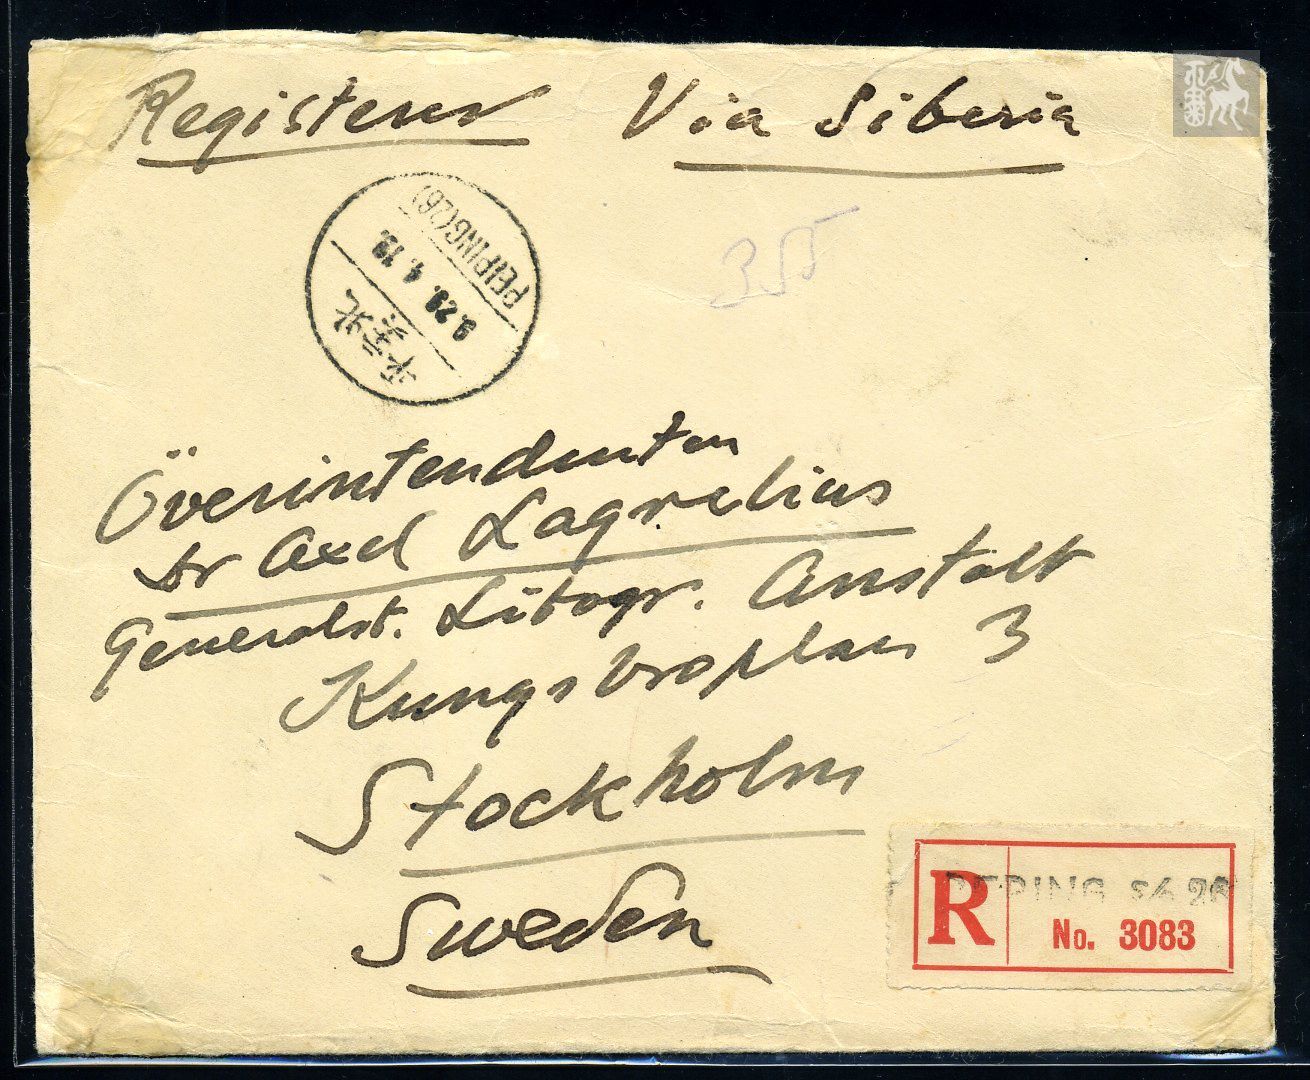 Registered Via Siberia
PEIPING(26)
9.29.4.19.
北京
355
Överintendenten
Dr Axel Lagrelius
Generalst. Litogr. Anstalt
Kungsbroplan 3
Stockholm
Sweden
R PEPING S/o 26
No. 3083